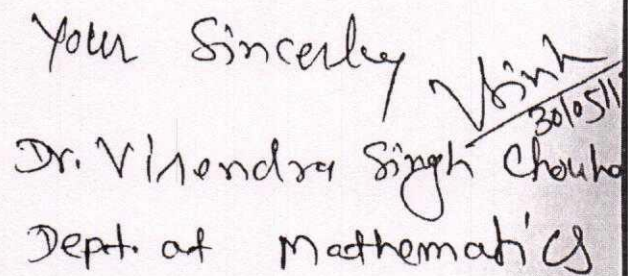 Your Sincerley
30/05/11
Dr. Virendra Singh Chouha
Dept. of Mathematics